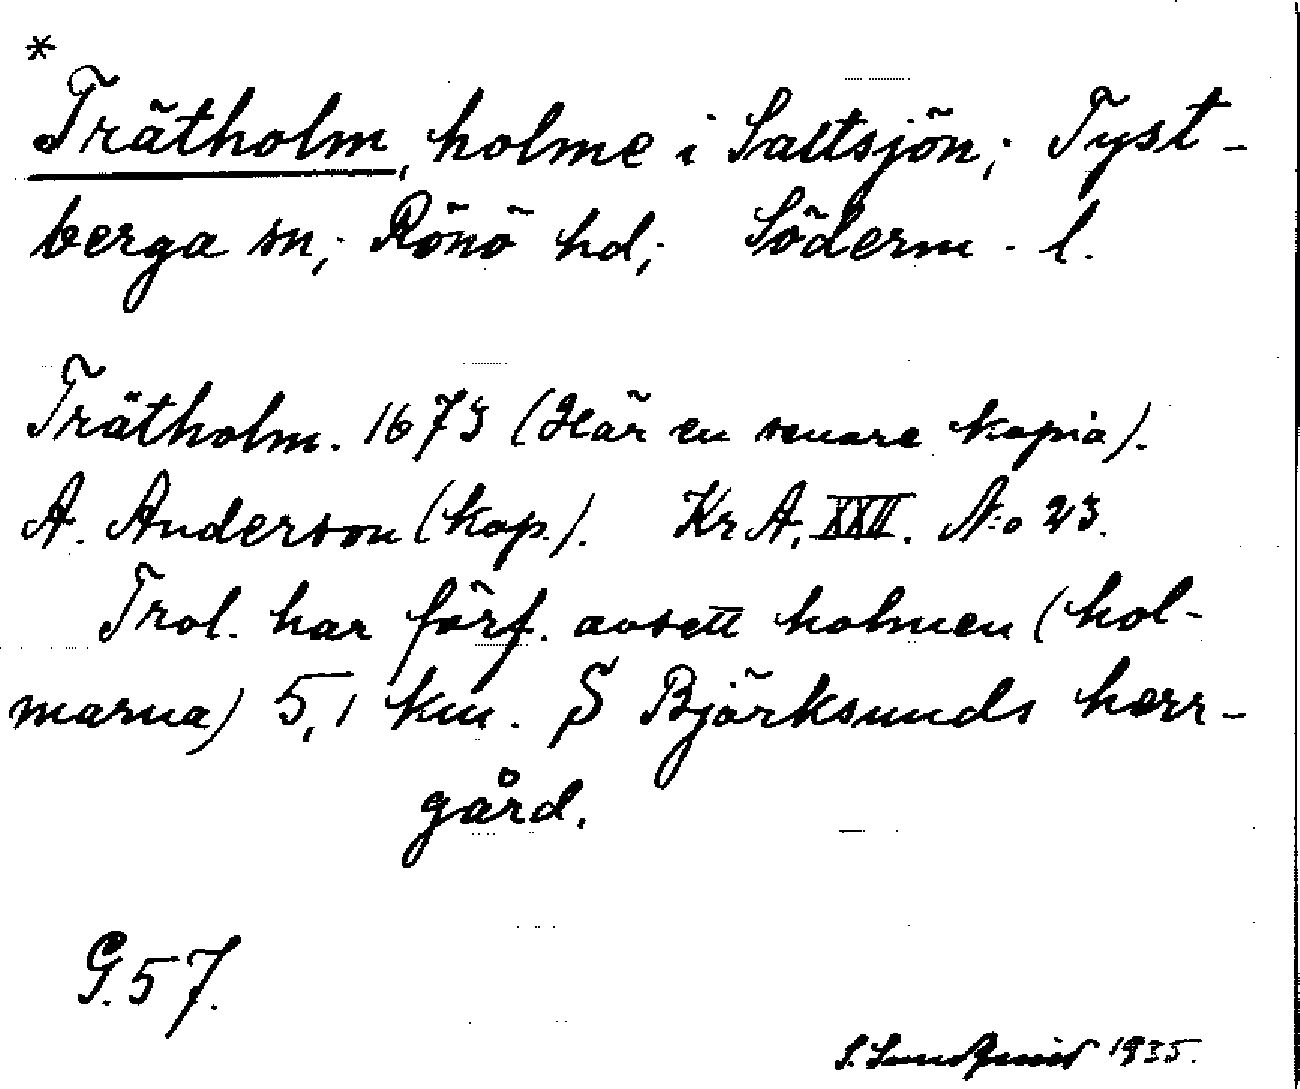 *
Trätholm, holme i Saltsjön; Tyst-
berga sn; Rönö hd; Söderm. l.
Trätholm. 1673 (Här en senare kopia).
A. Anderson (kop.). Kr A. XXII. N:o 23.
Trol. har förf. avsett holmen (hol-
marna) 5,1 km. S Björksunds herr-
gård.
G. 57.
S. Sundqvist 1935.